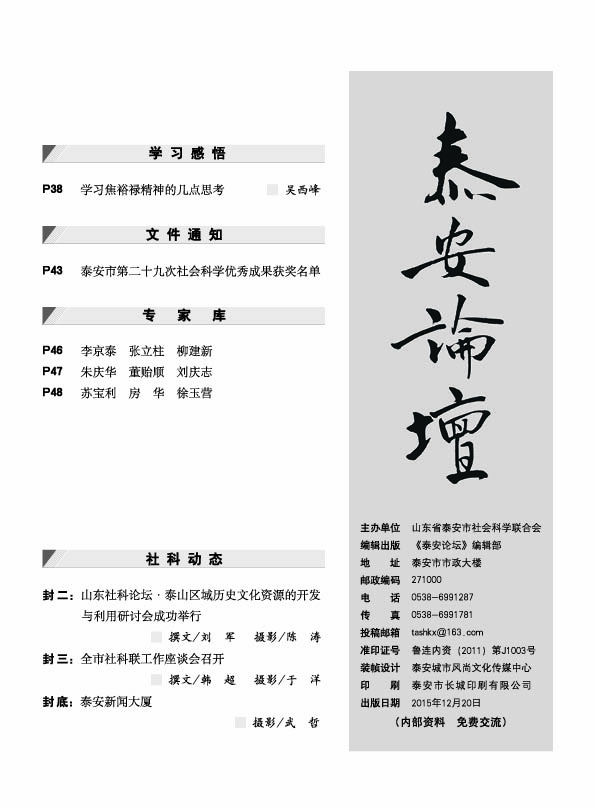 学习感悟
P38 学习焦裕禄精神的几点思考 吴西峰
文件通知
P43 泰安市第二十九次社会科学优秀成果获奖名单
专家库
P46 李京泰 张立柱 柳建新
P47 朱庆华 董贻顺 刘庆志
P48 苏宝利 房华 徐玉营
社科动态
封二：山东社科论坛·泰山区域历史文化资源的开发
与利用研讨会成功举行
撰文/刘军 摄影/陈涛
封三：全市社科联工作座谈会召开
撰文/韩超 摄影/于洋
封底：泰安新闻大厦
摄影/武哲
泰
安
論
壇
主办单位 山东省泰安市社会科学联合会
编辑出版 《泰安论坛》编辑部
地址 泰安市市政大楼
邮政编码 271000
电话 0538-6991287
传真 0538-6991781
投稿邮箱 tashkx@163.com
准印证号 鲁连内资（2011）第J1003号
装帧设计 泰安城市风尚文化传媒中心
印刷 泰安市长城印刷有限公司
出版日期 2015年12月20日
（内部资料 免费交流）